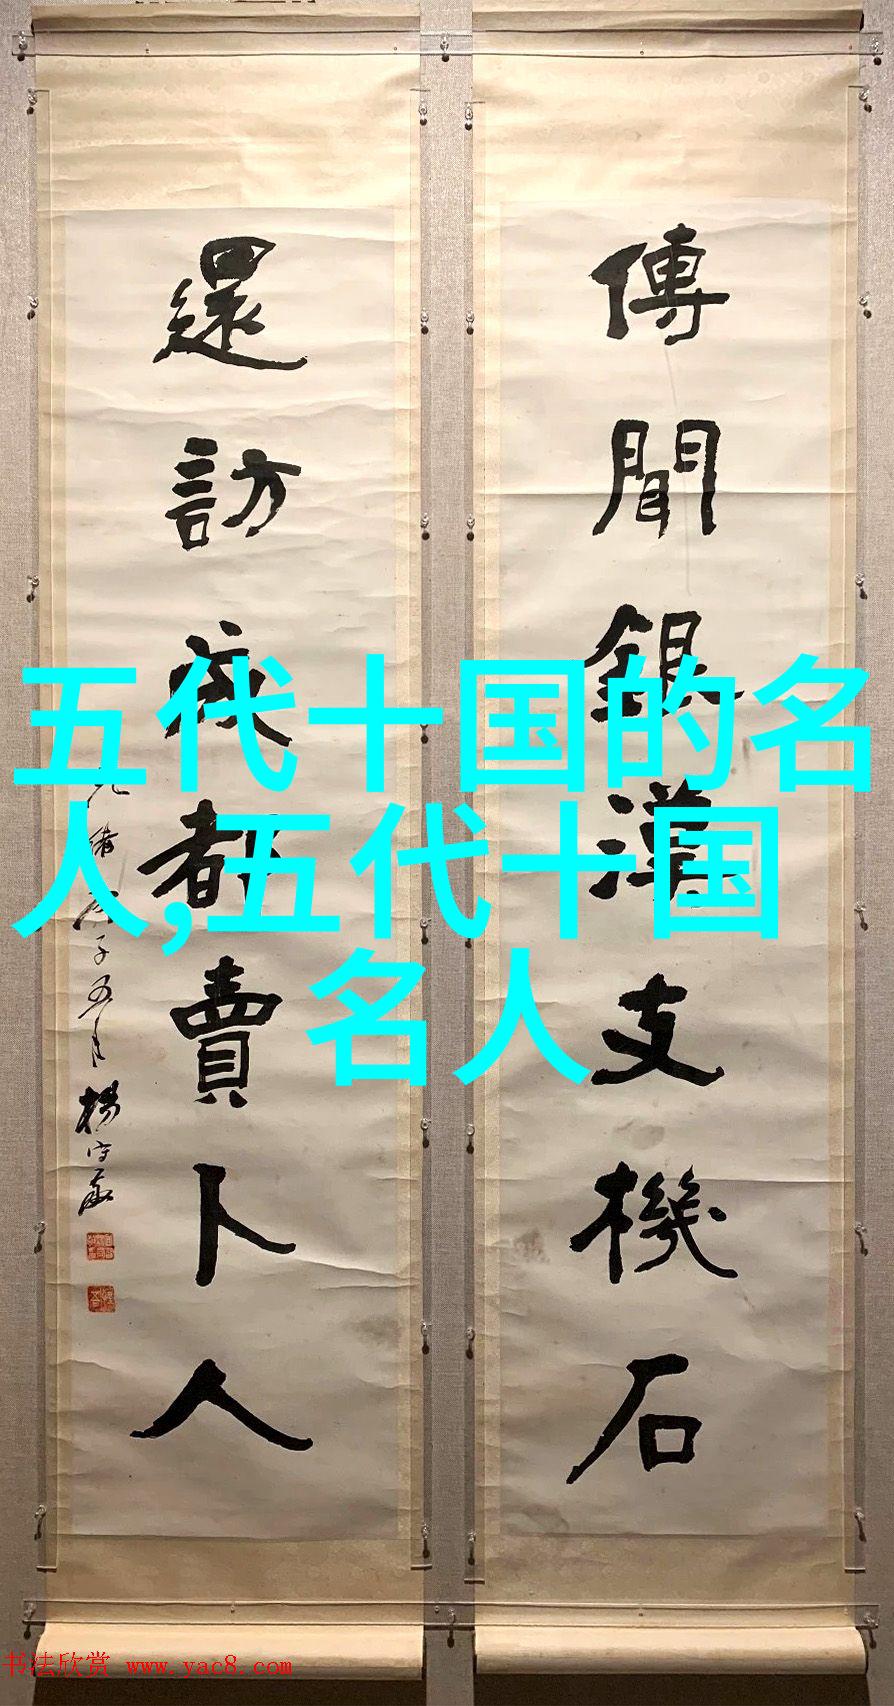 傳聞銀漢支機石
還訪成都賣卜人
光緒庚子五月楊守敬
五代十国的名
人,五代十国
名人
书法欣赏 www.yac8.com